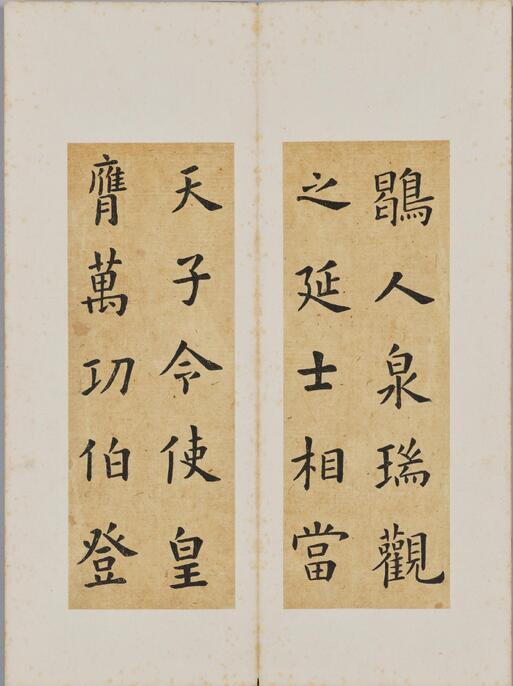 鶡人泉瑞觀
之延士相當
天子令使皇
膺萬功伯登